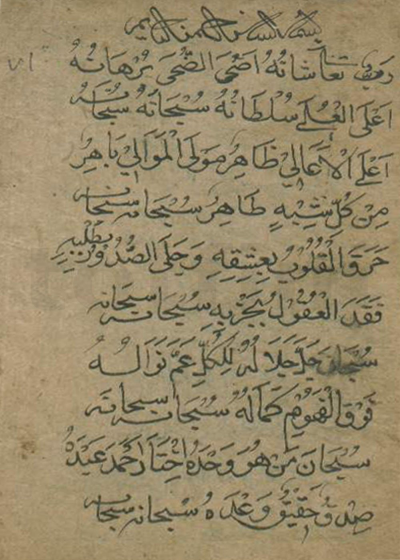 بسم الله الرحمن الرحيم
تعالى شانه اضحى الضحى برهانه
اعلى العلى سلطانه سبحانه سبحانه
اعلى الاعالي ظاهر مولى الموالي باهر
من كل شبه طاهر سبحانه سبحانه
حرق القلوب بعشقه وجلى الصدور بطلبه
فقد العقول بجذبه سبحانه سبحانه
سبحان جل جلاله للكل عم نواله
فوق الفهوم كماله سبحانه سبحانه
سبحان من هو وحده اختار احمد عبده
صدق حقيق وعده سبحانه سبحانه